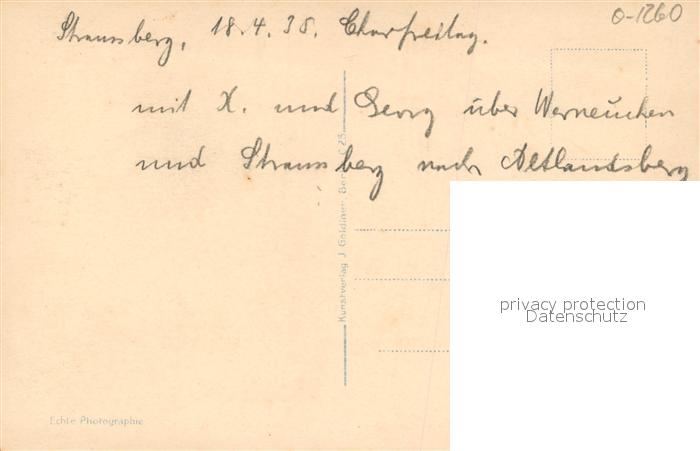 O-1260
Straussberg, 18.4.30. Charfreitag.
mit X. und Georg über Werneuchen
und Straussberg nach Altlandsberg
Kunstverlag J. Goldiner, Berlin C 25
privacy protection
Datenschutz
Echte Photographie